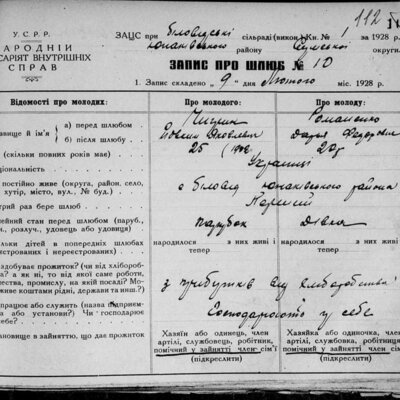 112
У. С. Р. Р.
АРОДНІЙ
САРІЯТ ВНУТРІШНІХ
СПРАВ
ЗАЦС при Біловідські сільраді (виком) Кн. № 1 за 1928 р.
Юнаківського району Сумської округи.
ЗАПИС ПРО ШЛЮБ № 10
1. Запис складено „ 9 “ дня Лютого міс. 1928 р.
Відомості про молодих:
Про молодого:
Про молоду:
звище й ім'я
а) перед шлюбом
б) після шлюбу
Романенко
Дар'я Федоровн
(скільки повних років має)
25 (1902)
20 р
ціональність
Українці
постійно живе (округа, район, село,
хутір, місто, вул., № буд.)
с Біловід Юнаківського района
трий раз бере шлюб
Первий
ейний стан перед шлюбом (паруб.,
н., розлуч., удовець або удовиця)
Парубок
Дівка
ільки дітей в попередніх шлюбах
естрованих і нереєстрованих)
народилося з них живі
тепер
народилося з них живі і
тепер
здобуває прожиток? (чи від хлібороб-
ва? а як ні, то від якої саме роботи,
ества, промислу, на якій посаді? Мо-
живе коштами рідні, держави та инш.?)
з прибутків від хліборобства
працює або служить (назва підприєм-
а або установи)? Чи господарює
себе?
Господарюють у себе
новище в зайнятті, що дає прожиток
Хазяїн або одинець, член
артілі, службовець, робітник,
помічний у зайнятті член сім'ї
(підкреслити)
Хазяйка або одиночка, член
артілі, службовка, робітниця,
помічна у зайнятті член сім'ї
(підкреслити)